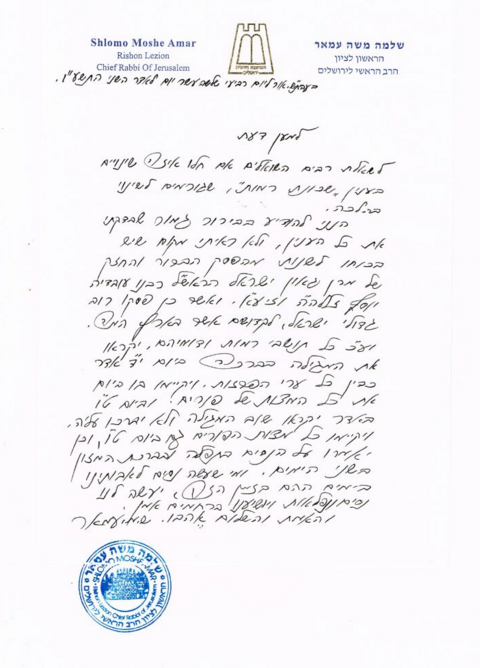 Shlomo Moshe Amar
Rishon Lezion
Chief Rabbi Of Jerusalem
שלמה משה עמאר
הראשון לציון
הרב הראשי לירושלים
בעזהש"י, אור ליום רביעי שלשה עשר יום לאדר השני התשע"ו.
למען דעת
לשאלת רבים השואלים אם חלו איזה שינויים
בענין "שכונת רמות", שגורמים לשינוי
בהלכה.
הנני להודיע בבירור גמור שבדקתי
את כל הענין, ולא ראיתי מקום שיש
בכוחו לשנות מהפסק הברור והחזק
של מרן גאון ישראל הראש"ל רבנו עובדיה
יוסף זצלה"ה וזיע"א. ואשר כן פסקו רוב
גדולי ישראל, לקדושים אשר בארץ המה.
וע"כ כל תושבי רמות ודומיהם, יקראו
את המגילה בברכה ביום י"ד אדר
כדין כל ערי הפרזות. ויקיימו בו ביום
את כל המצות של פורים. וביום ט"ו
באדר יקראו שוב המגילה ולא יברכו עליה,
ויקיימו כל מצות הפורים גם ביום ט"ו, וכן
יאמרו על הנסים בתפלה ובברכת המזון
בשני הימים. ומי שעשה נסים לאבותינו
בימים ההם בזמן הזה, יעשה לנו
נסים ונפלאות ויושיענו ברחמים אמן.
והאמת והשלום אהבו. ש"מ עמאר
שלמה משה עמאר
SHLOMO MOSHE AMAR
Rishon Lezion Chief Rabbi of Jerusalem
הראשון לציון הרב הראשי לירושלים